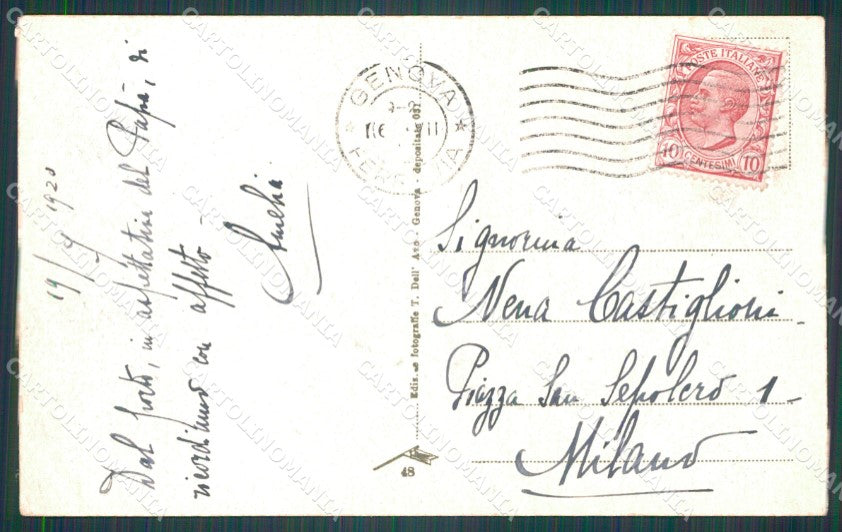 19/9 1920
Dal porto, in aspettativa del Papà, vi
ricordiamo con affetto -
GENOVA
FERROVIA
POSTE ITALIANE
10 CENTESIMI 10
Signorina
Nena Castiglioni.
Piazza San Sepolcro 1 -
Milano
Ediz. e fotografie T. Dell' Avo - Genova - depositate 031
48
CARTOLINOMANIA